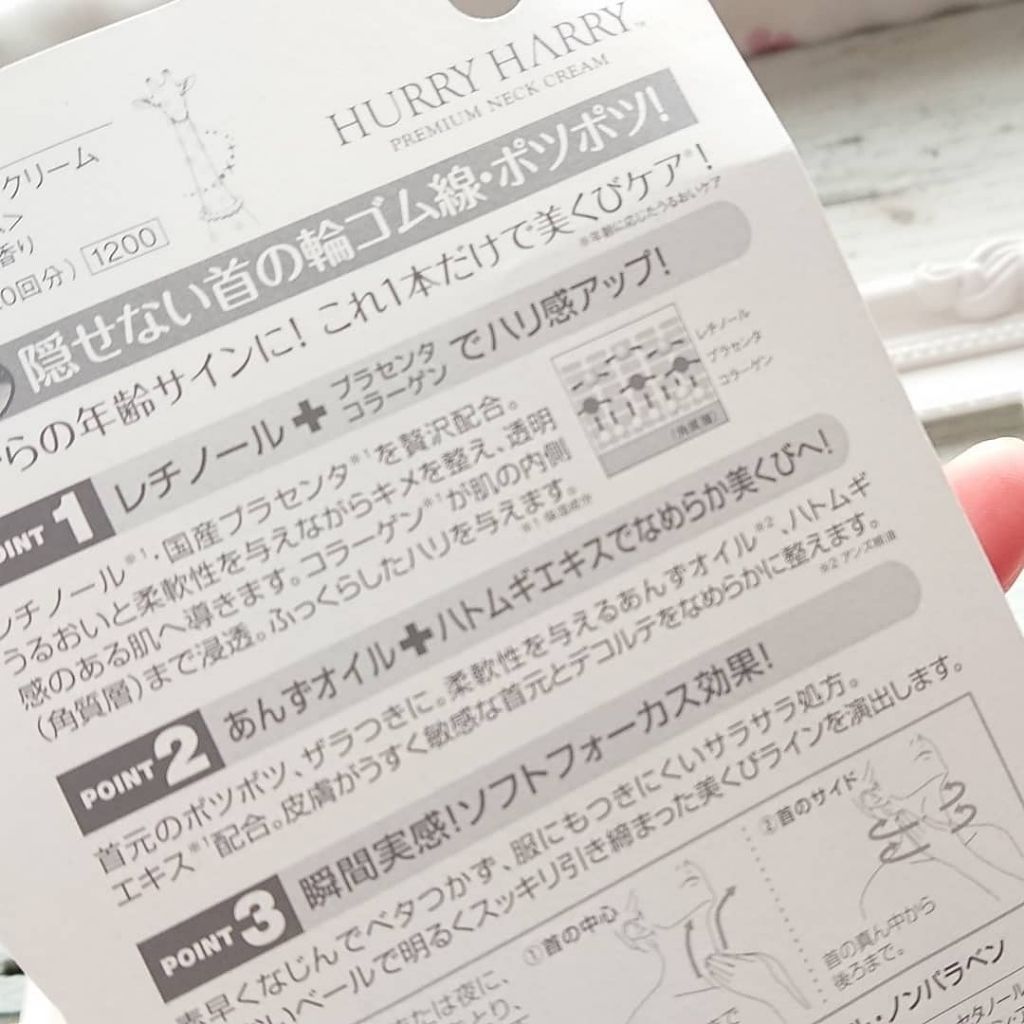 HURRY HARRY™
PREMIUM NECK CREAM
クリーム
ム>
香り
0回分) 1200
隠せない首の輪ゴム線・ポツポツ!
らの年齢サインに! これ1本だけで美くびケア※!
※年齢に応じたうるおいケア
POINT 1 レチノール+プラセンタ コラーゲン でハリ感アップ!
レチノール※1・国産プラセンタ※1を贅沢配合。
うるおいと柔軟性を与えながらキメを整え、透明
感のある肌へ導きます。コラーゲン※1が肌の内側
(角質層)まで浸透。ふっくらしたハリを与えます。
※1 保湿成分
レチノール
プラセンタ
コラーゲン
(角質層)
POINT 2 あんずオイル+ハトムギエキスでなめらか美くびへ!
首元のポツポツ、ザラつきに。柔軟性を与えるあんずオイル※2、ハトムギ
エキス※1配合。皮膚がうすく敏感な首元とデコルテをなめらかに整えます。
※2 アンズ核油
POINT 3 瞬間実感!ソフトフォーカス効果!
素早くなじんでベタつかず、服にもつきにくいサラサラ処方。
いベールで明るくスッキリ引き締まった美くびラインを演出します。
たは夜に、
とり、
①首の中心
まで
②首のサイド
首の真ん中から
後ろまで。
ル・ノンパラベン